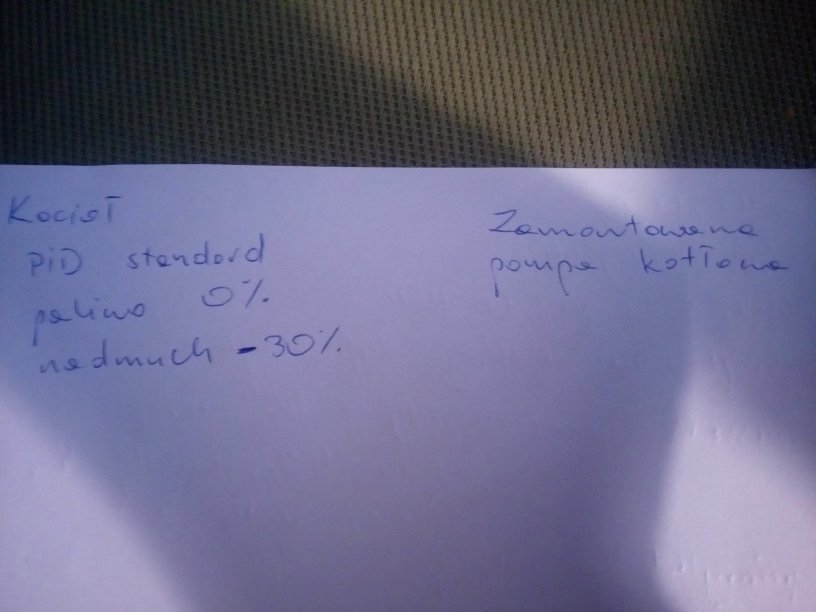 Kocioł
PiD standard
paliwo 0%
nadmuch -30%
Zamontowana
pompa kotłowa